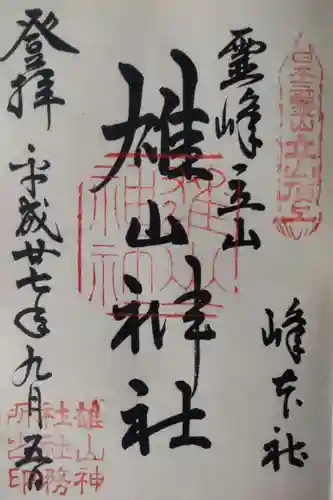 日本三霊山立山頂上
霊峰立山
峰本社
雄山神社
雄山神社
登拝
平成廿七年九月五日
雄山神
社社務
所出印